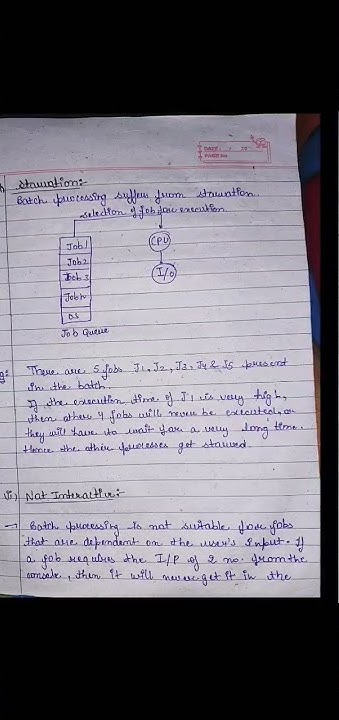 DATE: / / 20
PAGE No.
Starvation:-
Batch processing suffers from starvation.
selection of job for execution
Job 1
CPU
Job 2
Job 3
I/O
Job n
OS
Job Queue
There are 5 jobs J1, J2, J3, J4 & J5 present
in the batch.
If the execution time of J1 is very high,
then other 4 jobs will never be executed, or
they will have to wait for a very long time.
Hence the other processes get starved.
Not Interactive:-
→ Batch processing is not suitable for jobs
that are dependent on the user's input. If
a job requires the I/P of 2 no. from the
console, then it will never get it in the